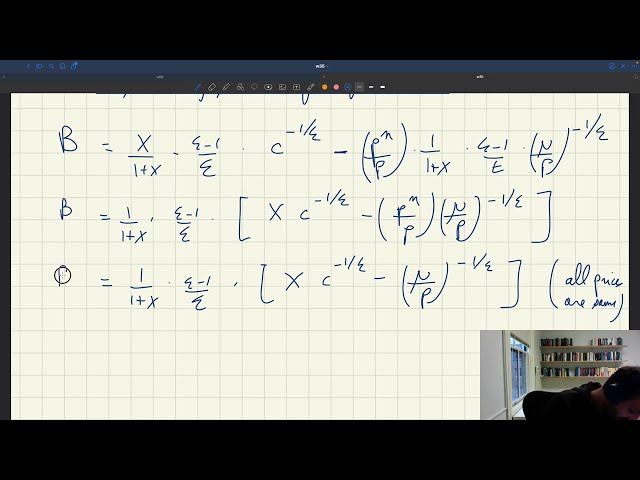 w36
B = X/1+x · ε-1/ε · c^-1/ε - (p^n/p) · 1/1+x · ε-1/ε · (N/p)^-1/ε
B = 1/1+x · ε-1/ε · [ X c^-1/ε - (p^n/p) (N/p)^-1/ε ]
= 1/1+x · ε-1/ε · [ X c^-1/ε - (N/p)^-1/ε ] (all prices
are same)